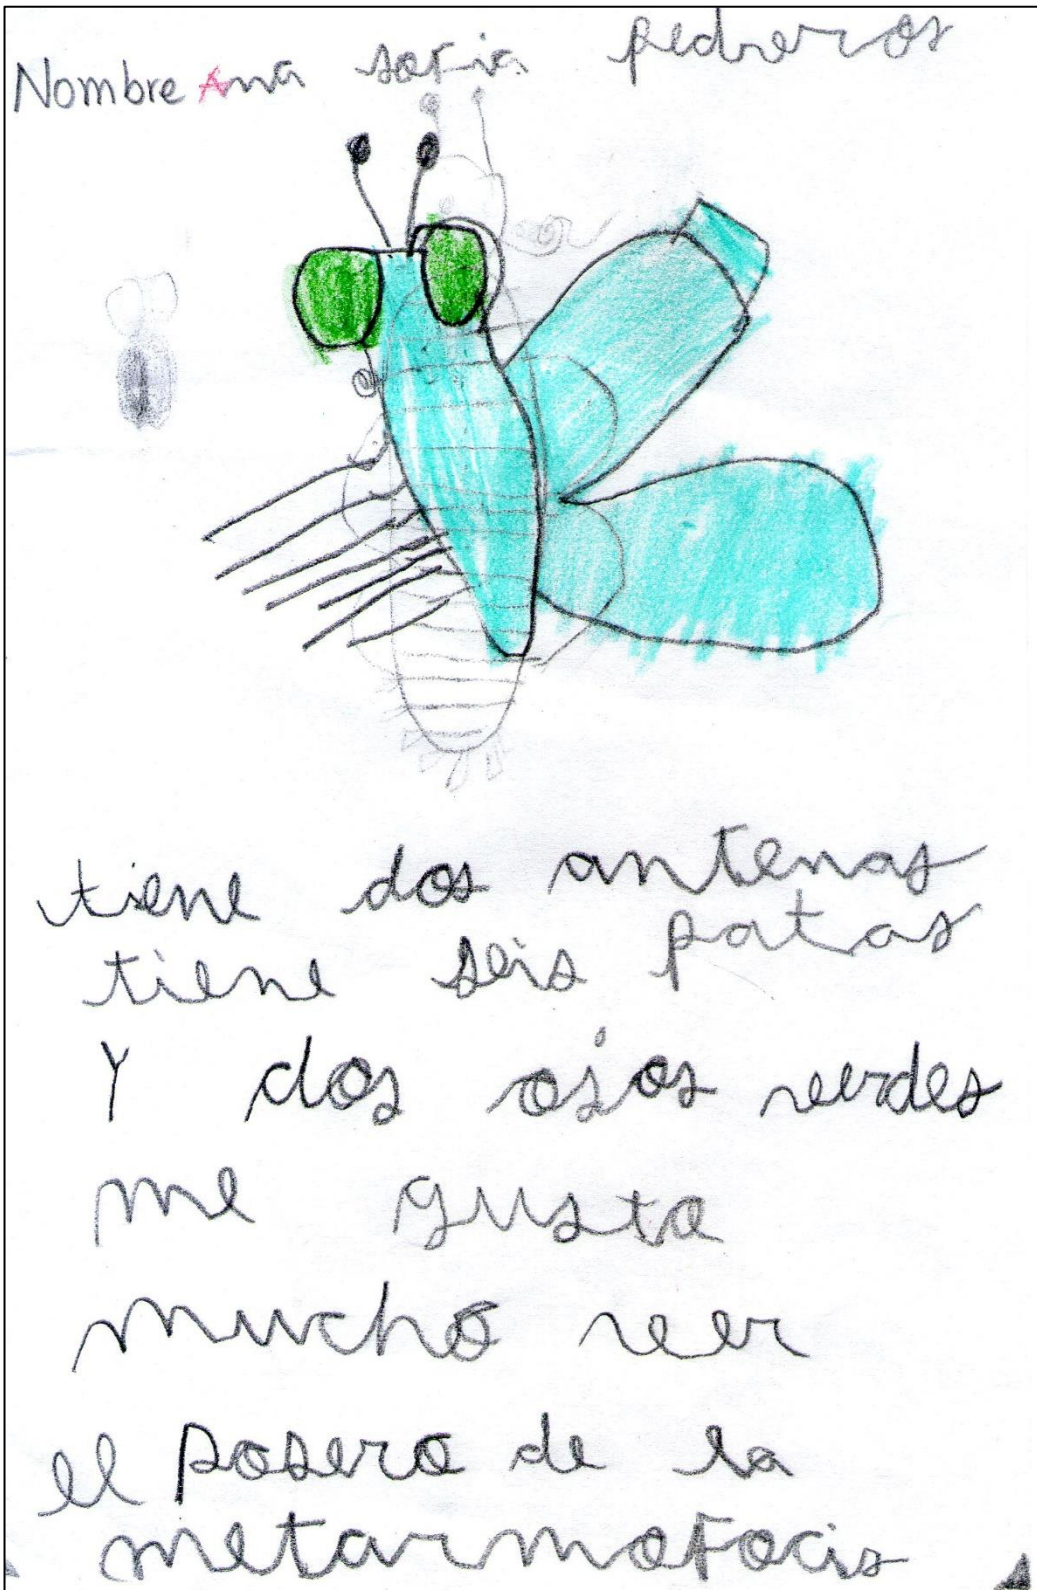 Nombre Ana sofia pedreros
tiene dos antenas
tiene seis patas
Y dos ojos verdes
me gusta
mucho ver
el posero de la
metarmofocis